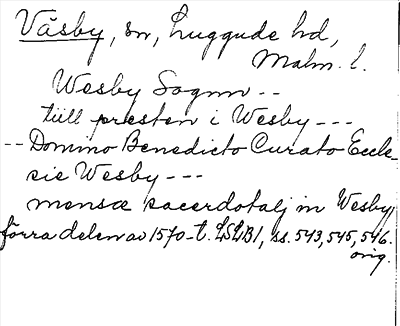 Väsby, sn, Luggude hd,
Malm. l.
Wesby Sognn --
tüll presten i Wesby ---
-- Domino Benedicto Curato Eccle-
sie Wesby ---
mensæ sacerdotalj in Wesby
förra delen av 1570-t. LSLB1, ss. 543, 545, 546.
orig.